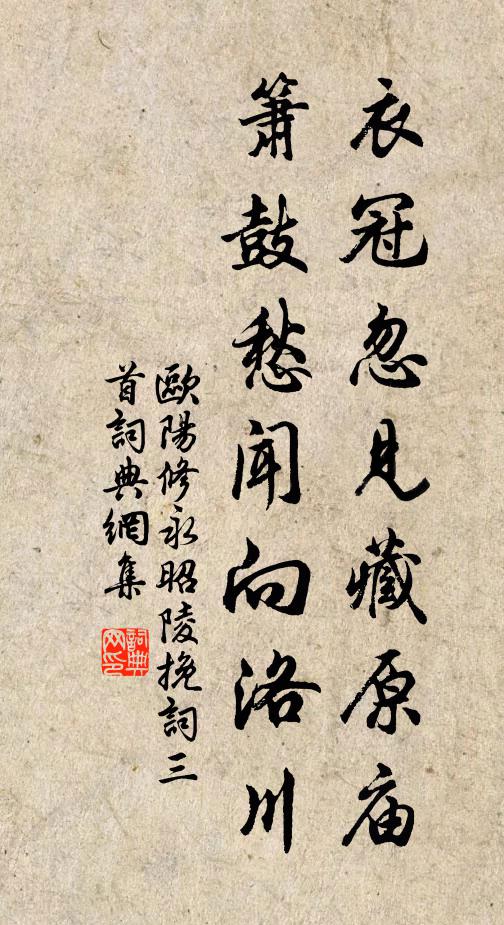 衣冠忽见藏原庙
箫鼓愁闻向洛川
歐陽修永昭陵挽詞三
首詞典網集
詞典
网印